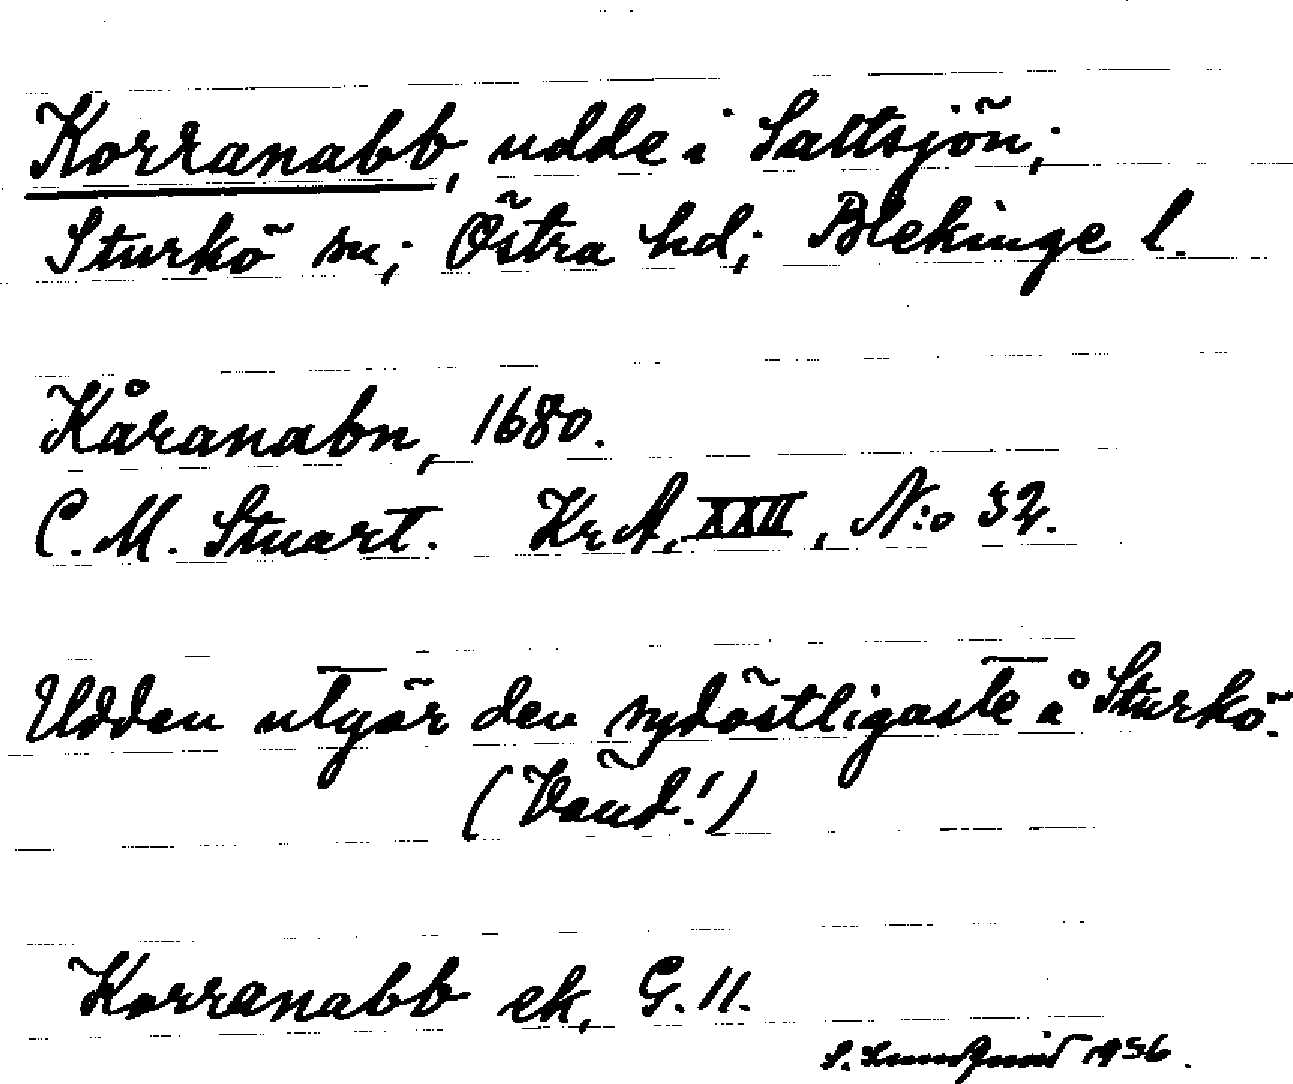 Korranabb, udde i Saltsjön;
Sturkö sn; Östra hd; Blekinge l.
Kåranabn, 1680.
C. M. Stuart. Kr A, XXII, N:o 32.
Udden utgör den sydöstligaste å Sturkö.
(Vänd!)
Korranabb ek, G. 11.
S. Lundquist 1936.